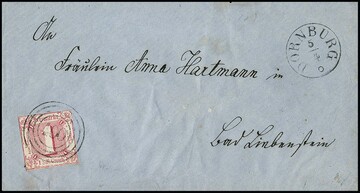 An
Fräulein Anna Hartmann in
Bad Liebenstein
DORNBURG